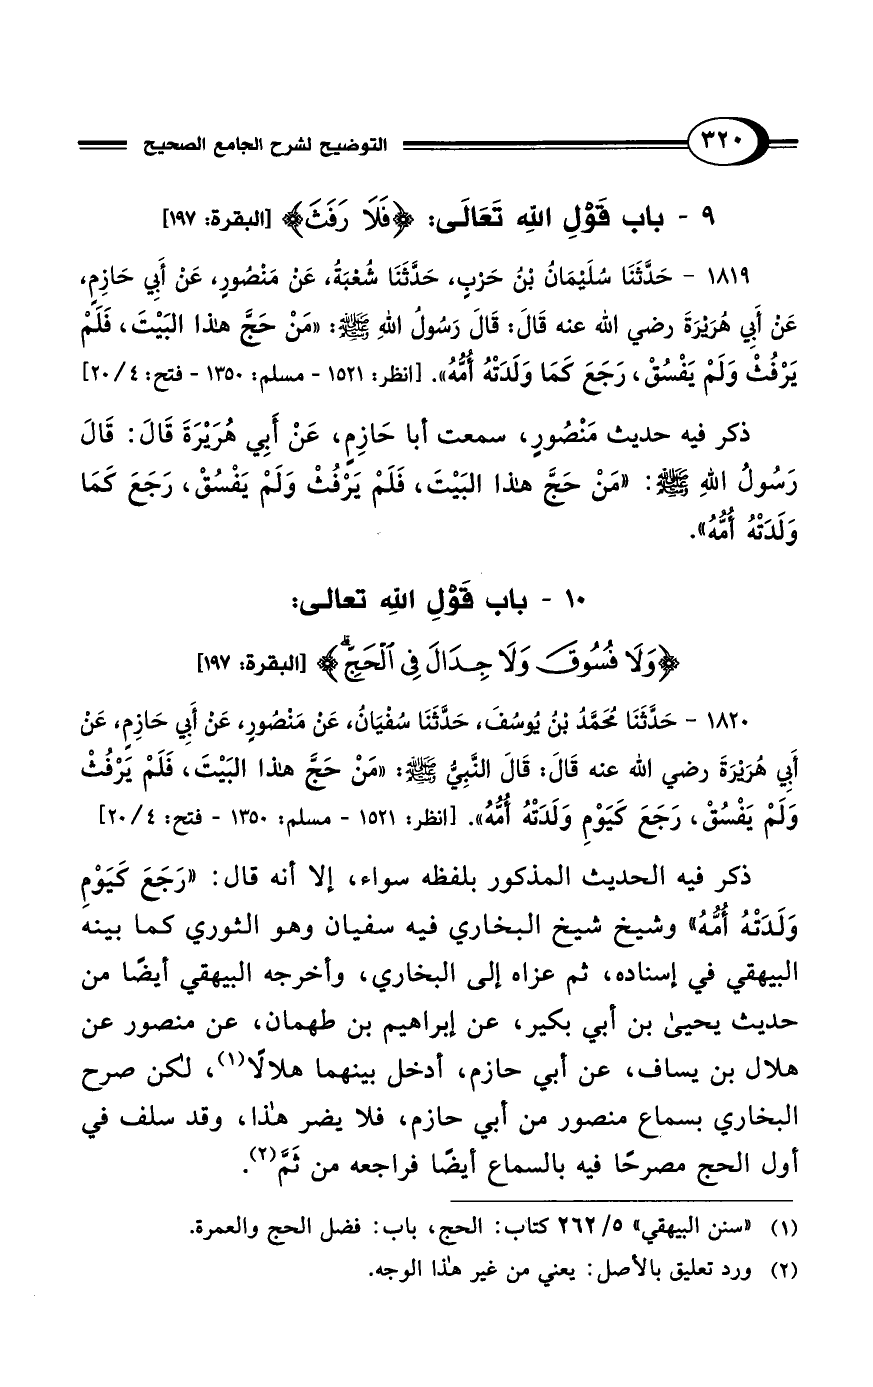 ٣٢٠ التوضيح لشرح الجامع الصحيح
٩ - باب قَوْلِ اللهِ تَعَالَى: ﴿فَلَا رَفَثَ﴾ [البقرة: ١٩٧]
١٨١٩ - حَدَّثَنَا سُلَيْمَانُ بْنُ حَرْبٍ، حَدَّثَنَا شُعْبَةُ، عَنْ مَنْصُورٍ، عَنْ أَبِي حَازِمٍ،
عَنْ أَبِي هُرَيْرَةَ رضي الله عنه قَالَ: قَالَ رَسُولُ اللهِ ﷺ: «مَنْ حَجَّ هٰذا البَيْتَ، فَلَمْ
يَرْفُثْ وَلَمْ يَفْسُقْ، رَجَعَ كَمَا وَلَدَتْهُ أُمُّهُ». [انظر: ١٥٢١ - مسلم: ١٣٥٠ - فتح: ٤/ ٢٠]
ذكر فيه حديث مَنْصُورٍ، سمعت أبا حَازِمٍ، عَنْ أَبِي هُرَيْرَةَ قَالَ: قَالَ
رَسُولُ اللهِ ﷺ: «مَنْ حَجَّ هٰذا البَيْتَ، فَلَمْ يَرْفُثْ وَلَمْ يَفْسُقْ، رَجَعَ كَمَا
وَلَدَتْهُ أُمُّهُ».
١٠ - باب قَوْلِ اللهِ تعالى:
﴿وَلَا فُسُوقَ وَلَا جِدَالَ فِى ٱلْحَجِّ ۗ﴾ [البقرة: ١٩٧]
١٨٢٠ - حَدَّثَنَا مُحَمَّدُ بْنُ يُوسُفَ، حَدَّثَنَا سُفْيَانُ، عَنْ مَنْصُورٍ، عَنْ أَبِي حَازِمٍ، عَنْ
أَبِي هُرَيْرَةَ رضي الله عنه قَالَ: قَالَ النَّبِيُّ ﷺ: «مَنْ حَجَّ هٰذا البَيْتَ، فَلَمْ يَرْفُثْ
وَلَمْ يَفْسُقْ، رَجَعَ كَيَوْمِ وَلَدَتْهُ أُمُّهُ». [انظر: ١٥٢١ - مسلم: ١٣٥٠ - فتح: ٤/ ٢٠]
ذكر فيه الحديث المذكور بلفظه سواء، إلا أنه قال: «رَجَعَ كَيَوْمِ
وَلَدَتْهُ أُمُّهُ» وشيخ شيخ البخاري فيه سفيان وهو الثوري كما بينه
البيهقي في إسناده، ثم عزاه إلى البخاري، وأخرجه البيهقي أيضًا من
حديث يحيىٰ بن أبي بكير، عن إبراهيم بن طهمان، عن منصور عن
هلال بن يساف، عن أبي حازم، أدخل بينهما هلالًا(١)، لكن صرح
البخاري بسماع منصور من أبي حازم، فلا يضر هٰذا، وقد سلف في
أول الحج مصرحًا فيه بالسماع أيضًا فراجعه من ثَمَّ(٢).
(١) «سنن البيهقي» ٥/ ٢٦٢ كتاب: الحج، باب: فضل الحج والعمرة.
(٢) ورد تعليق بالأصل: يعني من غير هٰذا الوجه.